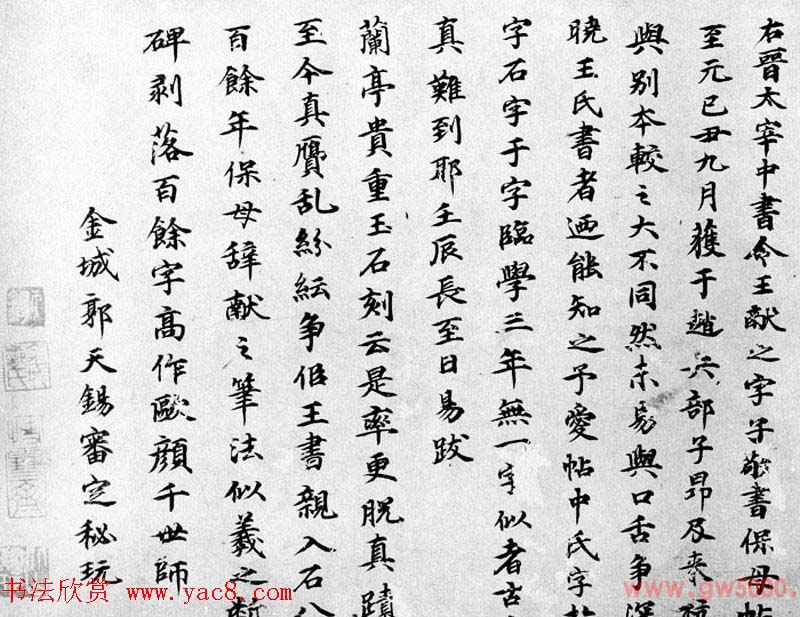 右晉太宰中書令王献之字子敬書保母帖
至元己丑九月獲于趙兵部子昂及来
與別本較之大不同然未易與口舌争深
曉王氏書者迺能知之予愛帖中氏字
字石字于字臨學三年無一字似者古
真難到耶壬辰長至日易跋
蘭亭貴重玉石刻云是率更脱真蹟
至今真贗乱紛紜争似王書親入石八
百餘年保母辞献之筆法似羲之断
碑剥落百餘字高作歐顔千世師
金城郭天錫審定秘玩
书法欣赏 www.yac8.com
www.gw5000.com